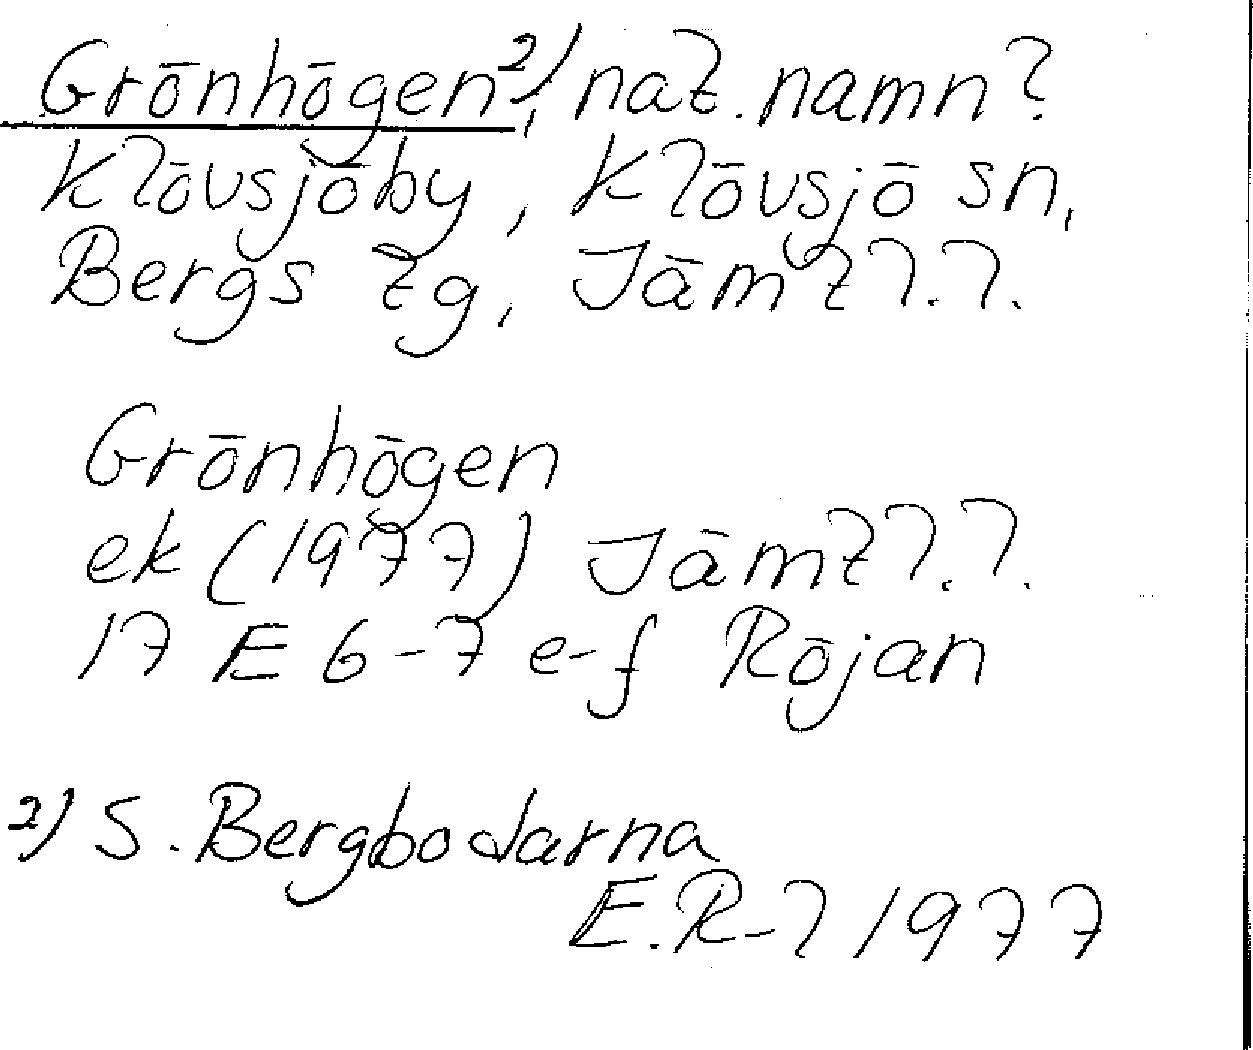 Grönhögen²⁾, nat. namn?
Klövsjöby, Klövsjö sn,
Bergs tg, Jämtl.l.
Grönhögen
ek (1977) Jämtl.l.
17 E 6-7 e-f Röjan
²⁾ S. Bergbodarna
E.R-l 1977